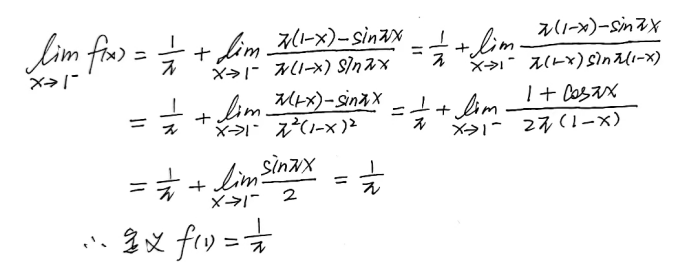 lim_{x→1⁻} f(x) = 1/π + lim_{x→1⁻} (π(1-x)-sinπx)/(π(1-x)sinπx) = 1/π + lim_{x→1⁻} (π(1-x)-sinπx)/(π(1-x)sinπ(1-x))
= 1/π + lim_{x→1⁻} (π(1-x)-sinπx)/(π²(1-x)²) = 1/π + lim_{x→1⁻} (1+cosπx)/(2π(1-x))
= 1/π + lim_{x→1⁻} sinπx/2 = 1/π
∴ 定义 f(1) = 1/π